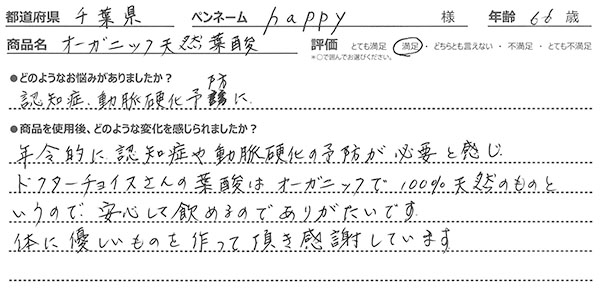 都道府県 千葉県 ペンネーム happy 様 年齢 66 歳
商品名 オーガニック天然葉酸 評価 とても満足・満足・どちらとも言えない・不満足・とても不満足
*○で囲んでお選びください。
●どのようなお悩みがありましたか?
認知症、動脈硬化予防に
●商品を使用後、どのような変化を感じられましたか?
年令的に認知症や動脈硬化の予防が必要と感じ
ドクターチョイスさんの葉酸はオーガニックで100%天然のものと
いうので安心して飲めるのでありがたいです
体に優しいものを作って頂き感謝しています